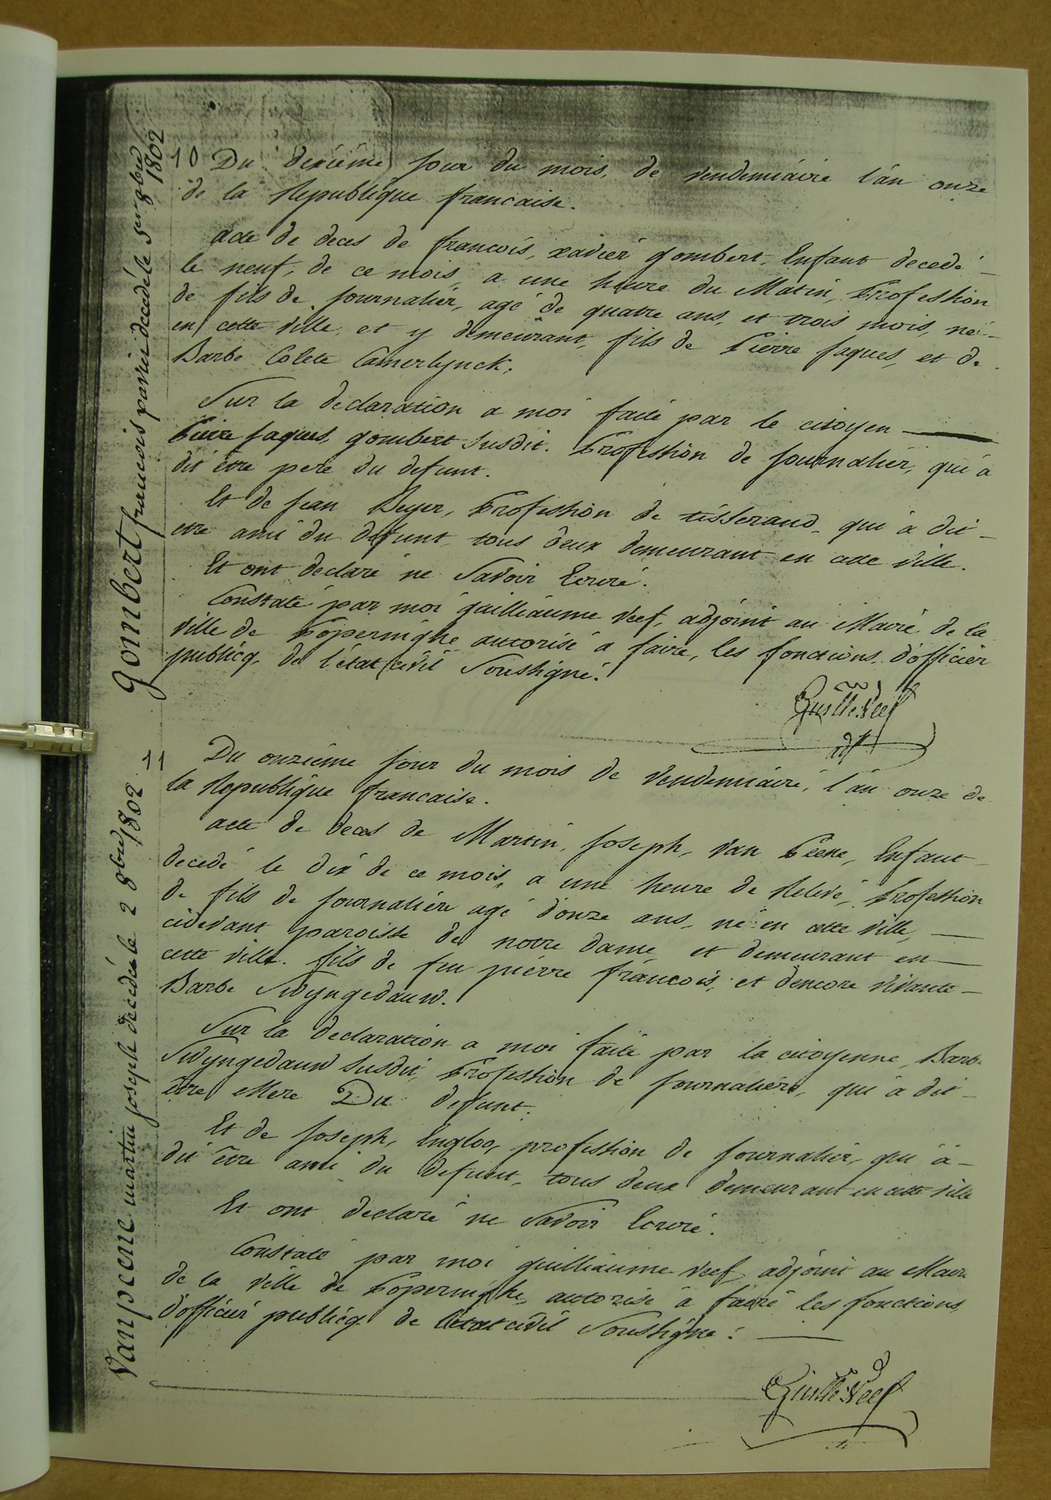 10 Du dixiéme Jour du mois, de vendemiaire l'an onze
de la Republique francaise.
acte de deces de francois, xavier gombert, Enfant decedé
le neuf, de ce mois, a une heure du Matin, Profession
de fils de Journalier, agé de quatre ans, et trois mois, né
en cette ville, et y demeurant, fils de Pierre Jaques, et de
Barbe Colete Camerlynck.
Sur la declaration a moi faite par le citoyen
Pierre Jaques gombert susdit. Profession de Journalier, qui a
dit être pere du defunt.
Et de Jean Beyer, Profession de tisserand, qui à dit
etre ami du defunt, tous deux demeurant en cette ville.
Et ont declaré ne Savoir Ecrire.
Constaté par moi guilliaume Neef, adjoint au Maire de la
ville de Poperinghe autorisé a faire, les fonctions d'officier
publicq de l'état civil Soussigné.
Guille Neef
gombert francois xavier décédé le
1802
11 Du onziéme Jour du mois de vendemiaire, l'an onze de
la Republique francaise.
acte de deces de Martin, Joseph, van Peene, Enfant
decedé le dix de ce mois, a une heure de Relevé, Profession
de fils de Journaliére agé d'onze ans, né en cette ville,
cidevant paroisse de notre dame, et demeurant en
cette ville. fils de feu pierre francois, et d'encore vivante
Barbe Swyngedauw.
Sur la declaration a moi faite par la citoyenne Barbe
Swyngedauw susdit, Profession de Journaliére, qui à dit
être Mere Du defunt.
Et de Joseph, Profession de Journalier, qui à
dit être ami du defunt, tous deux demeurant en cette ville
Et ont declaré ne Savoir Ecrire.
Constaté par moi guilliaume Neef, adjoint au Maire
de la ville de Poperinghe, autorisé à faire les fonctions
d'officier publicq de l'état civil Soussigné.
Guille Neef
Vanpeene martin joseph décédé le 2 8bre 1802